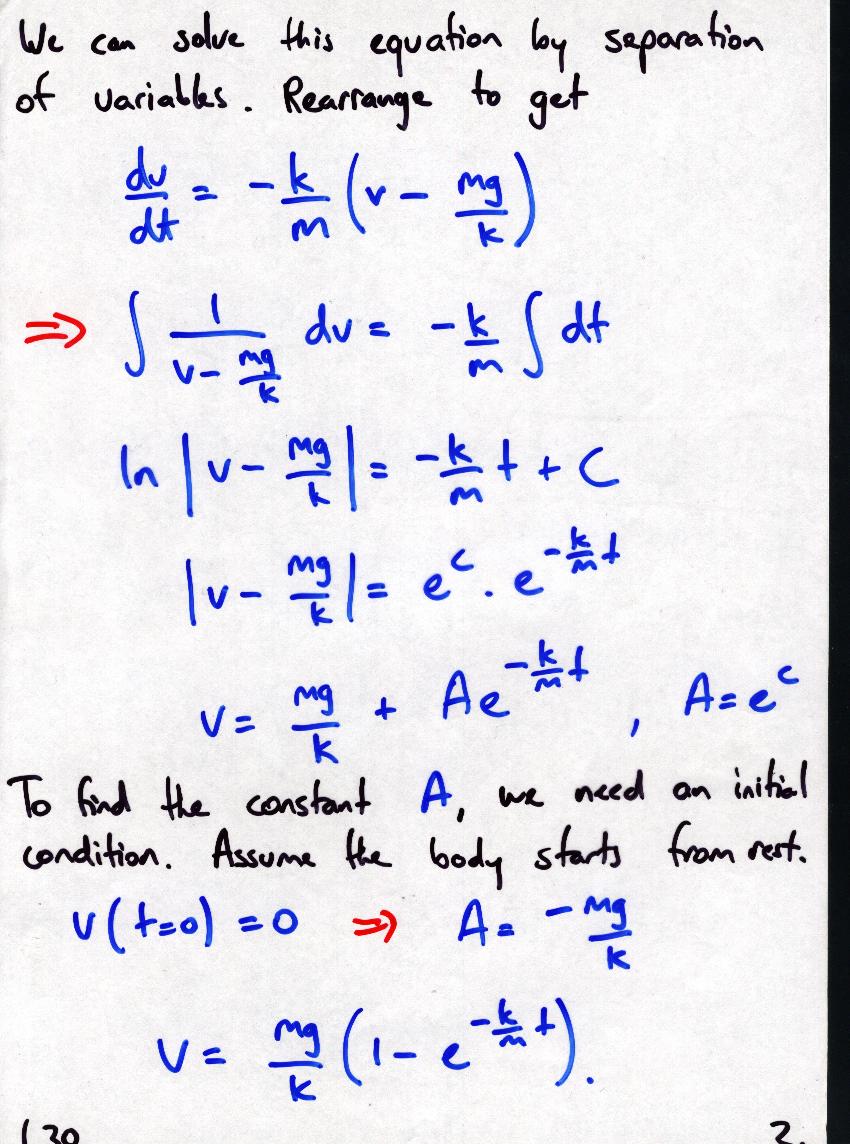 We can solve this equation by separation
of variables. Rearrange to get
dv/dt = -k/m (v - mg/k)
⇒ ∫ 1/(v - mg/k) dv = -k/m ∫ dt
ln |v - mg/k| = -k/m t + C
|v - mg/k| = e^c . e^(-k/m t)
v = mg/k + A e^(-k/m t) , A = e^c
To find the constant A, we need an initial
condition. Assume the body starts from rest.
v(t=0) = 0 ⇒ A = -mg/k
v = mg/k (1 - e^(-k/m t)).